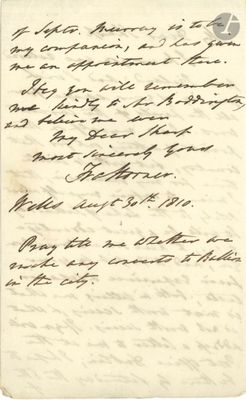 of Septr. Murray is to be
my companion, and has given
me an appointment there.
I beg you will remember
me kindly to Mr Boddington
and believe me ever
My Dear Sharp
most sincerely yours
Fra Horner.
Wells Augt 30th. 1810.
Pray tell me whether we
make any converts to Bullion
in the city.